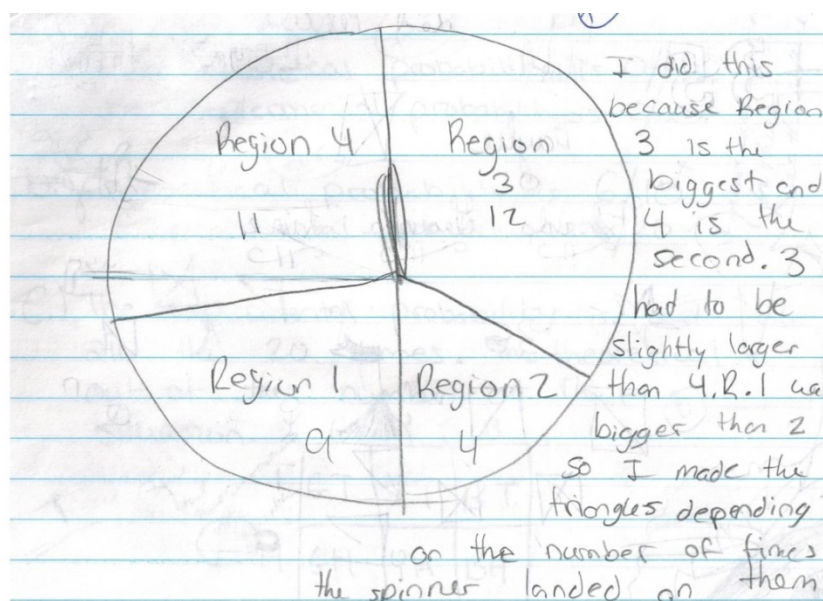 Region 4
11
Region
3
12
Region 1
9
Region 2
4
I did this
because Region
3 is the
biggest and
4 is the
second. 3
had to be
slightly larger
than 4. R. 1 wa
bigger than 2
so I made the
triongles depending
on the number of times
the spinner landed on them